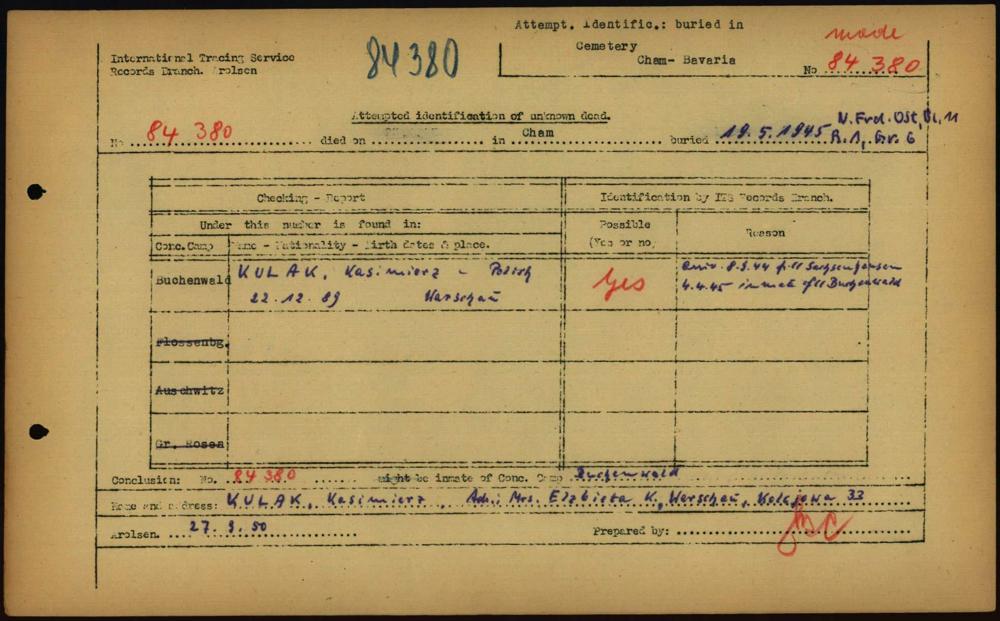 Attempt. Identific.: buried in
Cemetery
Cham- Bavaria
made
No 84 380
84380
International Tracing Service
Records Branch. Arolsen
Attempted identification of unknown dead.
No 84 380 died on in Cham buried 19.5.1945
R.1, Gr. 6
Checking - Report
Identification by ITS Records Branch.
Under this number is found in:
Possible
(Yes or no)
Reason
Conc. Camp
Name - Nationality - Birth dates & place.
Buchenwald
KULAK, Kasimierz - Polish
22.12.89 Warschau
Yes
8.9.44 Sachsenhausen
4.4.45 inmate Buchenwald
Flossenbg.
Auschwitz
Gr. Rosen
Conclusion: No. 84380 might be inmate of Conc. Camp Buchenwald
Name and address: KULAK, Kasimierz, Adr.: Mrs. Elzbieta K, Warschau, Kolejowa 33
Arolsen. 27. 9. 50 Prepared by: